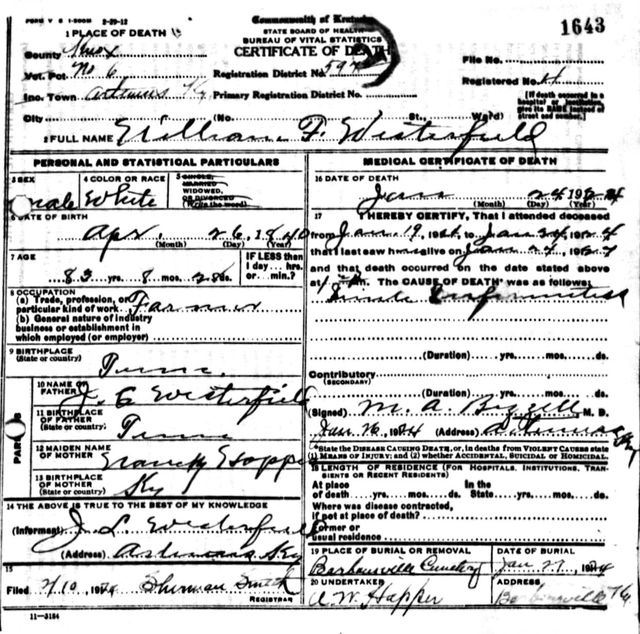 FORM V S 1-500M 2-29-12
1 PLACE OF DEATH
County Knox
Vot. Pct No 6
Inc. Town Artemus Ky
City (No. St., Ward)
Commonwealth of Kentucky
STATE BOARD OF HEALTH
BUREAU OF VITAL STATISTICS
CERTIFICATE OF DEATH
Registration District No.
Primary Registration District No.
1643
File No.
Registered No.
[If death occurred in a
hospital or institution,
give its NAME instead of
street and number.]
2 FULL NAME William F. Westerfield
PERSONAL AND STATISTICAL PARTICULARS
3 SEX
male
4 COLOR OR RACE
White
5 SINGLE,
MARRIED
WIDOWED,
OR DIVORCED
(Write the word)
6 DATE OF BIRTH
Apr. 26, 1840
(Month) (Day) (Year)
7 AGE
83 yrs. 8 mos. 28 ds.
IF LESS than
1 day ... hrs.
or ... min.?
8 OCCUPATION
(a) Trade, profession, or
particular kind of work Farmer
(b) General nature of industry
business or establishment in
which employed (or employer)
9 BIRTHPLACE
(State or country) Tenn.
PARENTS
10 NAME OF
FATHER Westerfield
11 BIRTHPLACE
OF FATHER
(State or country) Tenn
12 MAIDEN NAME
OF MOTHER
13 BIRTHPLACE
OF MOTHER
(State or country) Ky
14 THE ABOVE IS TRUE TO THE BEST OF MY KNOWLEDGE
(Informant) J. L. Westerfield
(Address) Artemus Ky
15
Filed 2/10, 1924 Sherman Smith
REGISTRAR
11-3184
MEDICAL CERTIFICATE OF DEATH
16 DATE OF DEATH
Jan 24 1924
(Month) (Day) (Year)
17 I HEREBY CERTIFY, That I attended deceased
from Jan. 19, 1924, to Jan 24, 1924
that I last saw him alive on Jan 24, 1924
and that death occurred on the date stated above
at m. The CAUSE OF DEATH* was as follows:
Senile Infirmities
(Duration) yrs. mos. ds.
Contributory
(SECONDARY)
(Duration) yrs. mos. ds.
(Signed) M. A. Bizzell M. D.
Jan 26, 1924 (Address) Artemus Ky
*State the DISEASE CAUSING DEATH, or, in deaths from VIOLENT CAUSES state
1) MEANS OF INJURY; and (2) whether ACCIDENTAL, SUICIDAL or HOMICIDAL.
18 LENGTH OF RESIDENCE (FOR HOSPITALS, INSTITUTIONS, TRANSIENTS OR RECENT RESIDENTS)
At place In the
of death yrs. mos. ds. State yrs. mos. ds.
Where was disease contracted,
if not at place of death?
Former or
usual residence
19 PLACE OF BURIAL OR REMOVAL
Barbourville Cemetery
DATE OF BURIAL
Jan 27, 1924
20 UNDERTAKER
A. W. Hopper
ADDRESS
Barbourville Ky